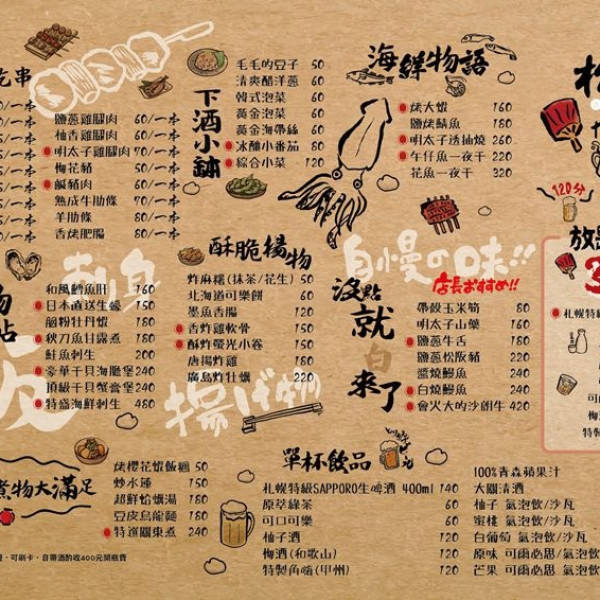 吃串
鹽蔥雞腿肉 60/一本
柚香雞腿肉 60/一本
明太子雞腿肉 70/一本
梅花豬 50/一本
鹹豬肉 60/一本
熟成牛肋條 70/一本
羊肋條 80/一本
香烤肥腸 60/一本
下酒小缽
毛毛的豆子 50
清爽醋洋蔥 60
韓式泡菜 60
黃金泡菜 60
黃金海帶絲 60
冰釀小番茄 80
綜合小菜 120
海鮮物語
烤大蝦 160
鹽烤鯖魚 180
明太子透抽燒 260
午仔魚一夜干 220
花魚一夜干 320
120分
刺身
和風鱈魚肝 160
日本直送生蠔 150
胭粉牡丹蝦 180
秋刀魚甘露煮 180
鮭魚刺生 200
豪華干貝海膽堡 240
頂級干貝蟹膏堡 240
特盛海鮮刺生 480
酥脆揚物
炸麻糬(抹茶/花生) 50
北海道可樂餅 60
墨魚香腸 120
香炸雞軟骨 150
酥炸螢光小卷 150
唐揚炸雞 180
廣島炸牡蠣 220
揚げ物
自慢の味!!
店長おすすめ!!
沒點就白來了
帶殼玉米筍 80
明太子山藥 160
鹽蔥牛舌 180
鹽蔥松阪豬 220
醬燒鰻魚 240
白燒鰻魚 240
會火大的沙朗牛 420
放
札幌特級
可
梅酒
特製
煮物大滿足
烤櫻花蝦飯糰 50
炒水蓮 150
超鮮蛤蠣湯 180
豆皮烏龍麵 180
特選關東煮 240
可刷卡、自帶酒酌收400元開瓶費
單杯飲品
札幌特級SAPPORO生啤酒 400ml 140
原萃綠茶 60
可口可樂 60
柚子酒 120
梅酒(和歌山) 120
特製角嗨(甲州) 120
100%青森蘋果汁
大關清酒
柚子 氣泡飲/沙瓦
蜜桃 氣泡飲/沙瓦
白葡萄 氣泡飲/沙瓦
原味 可爾必思/氣泡飲
芒果 可爾必思/氣泡飲